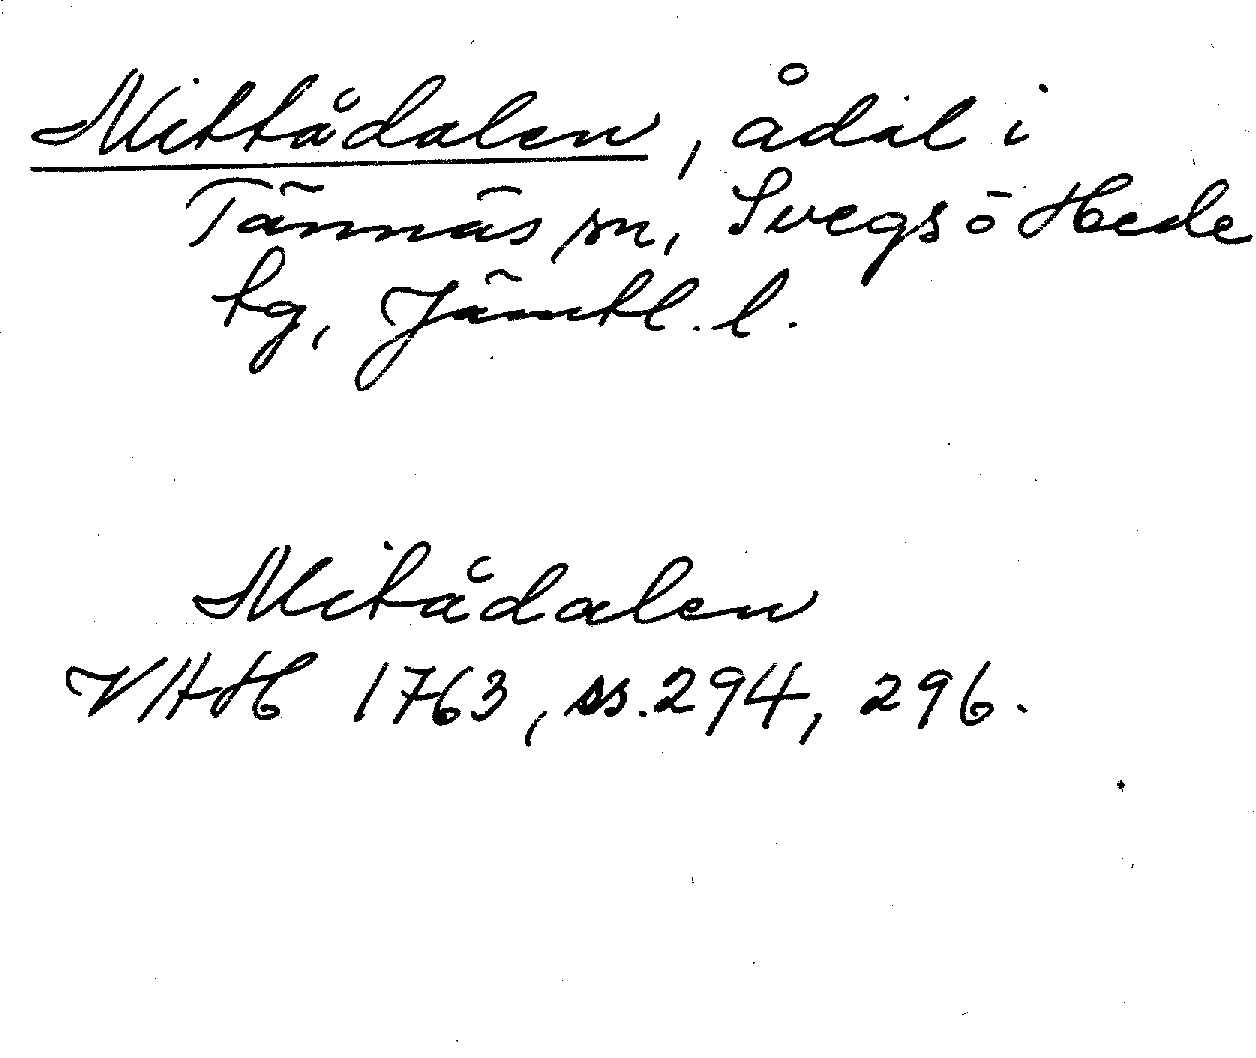 Mittådalen, ådal i
Tännäs sn, Svegs o Hede
tg, Jämtl. l.
Mitådalen
VHH 1763, ss. 294, 296.